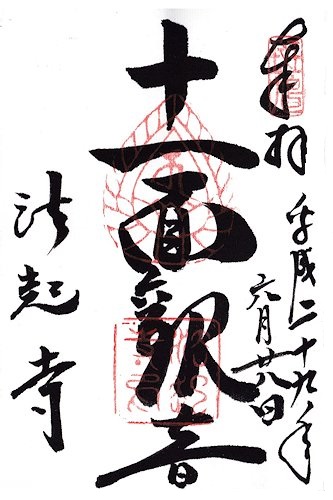 奉拝
平成二十九年
六月廿八日
十一面観音
法起寺